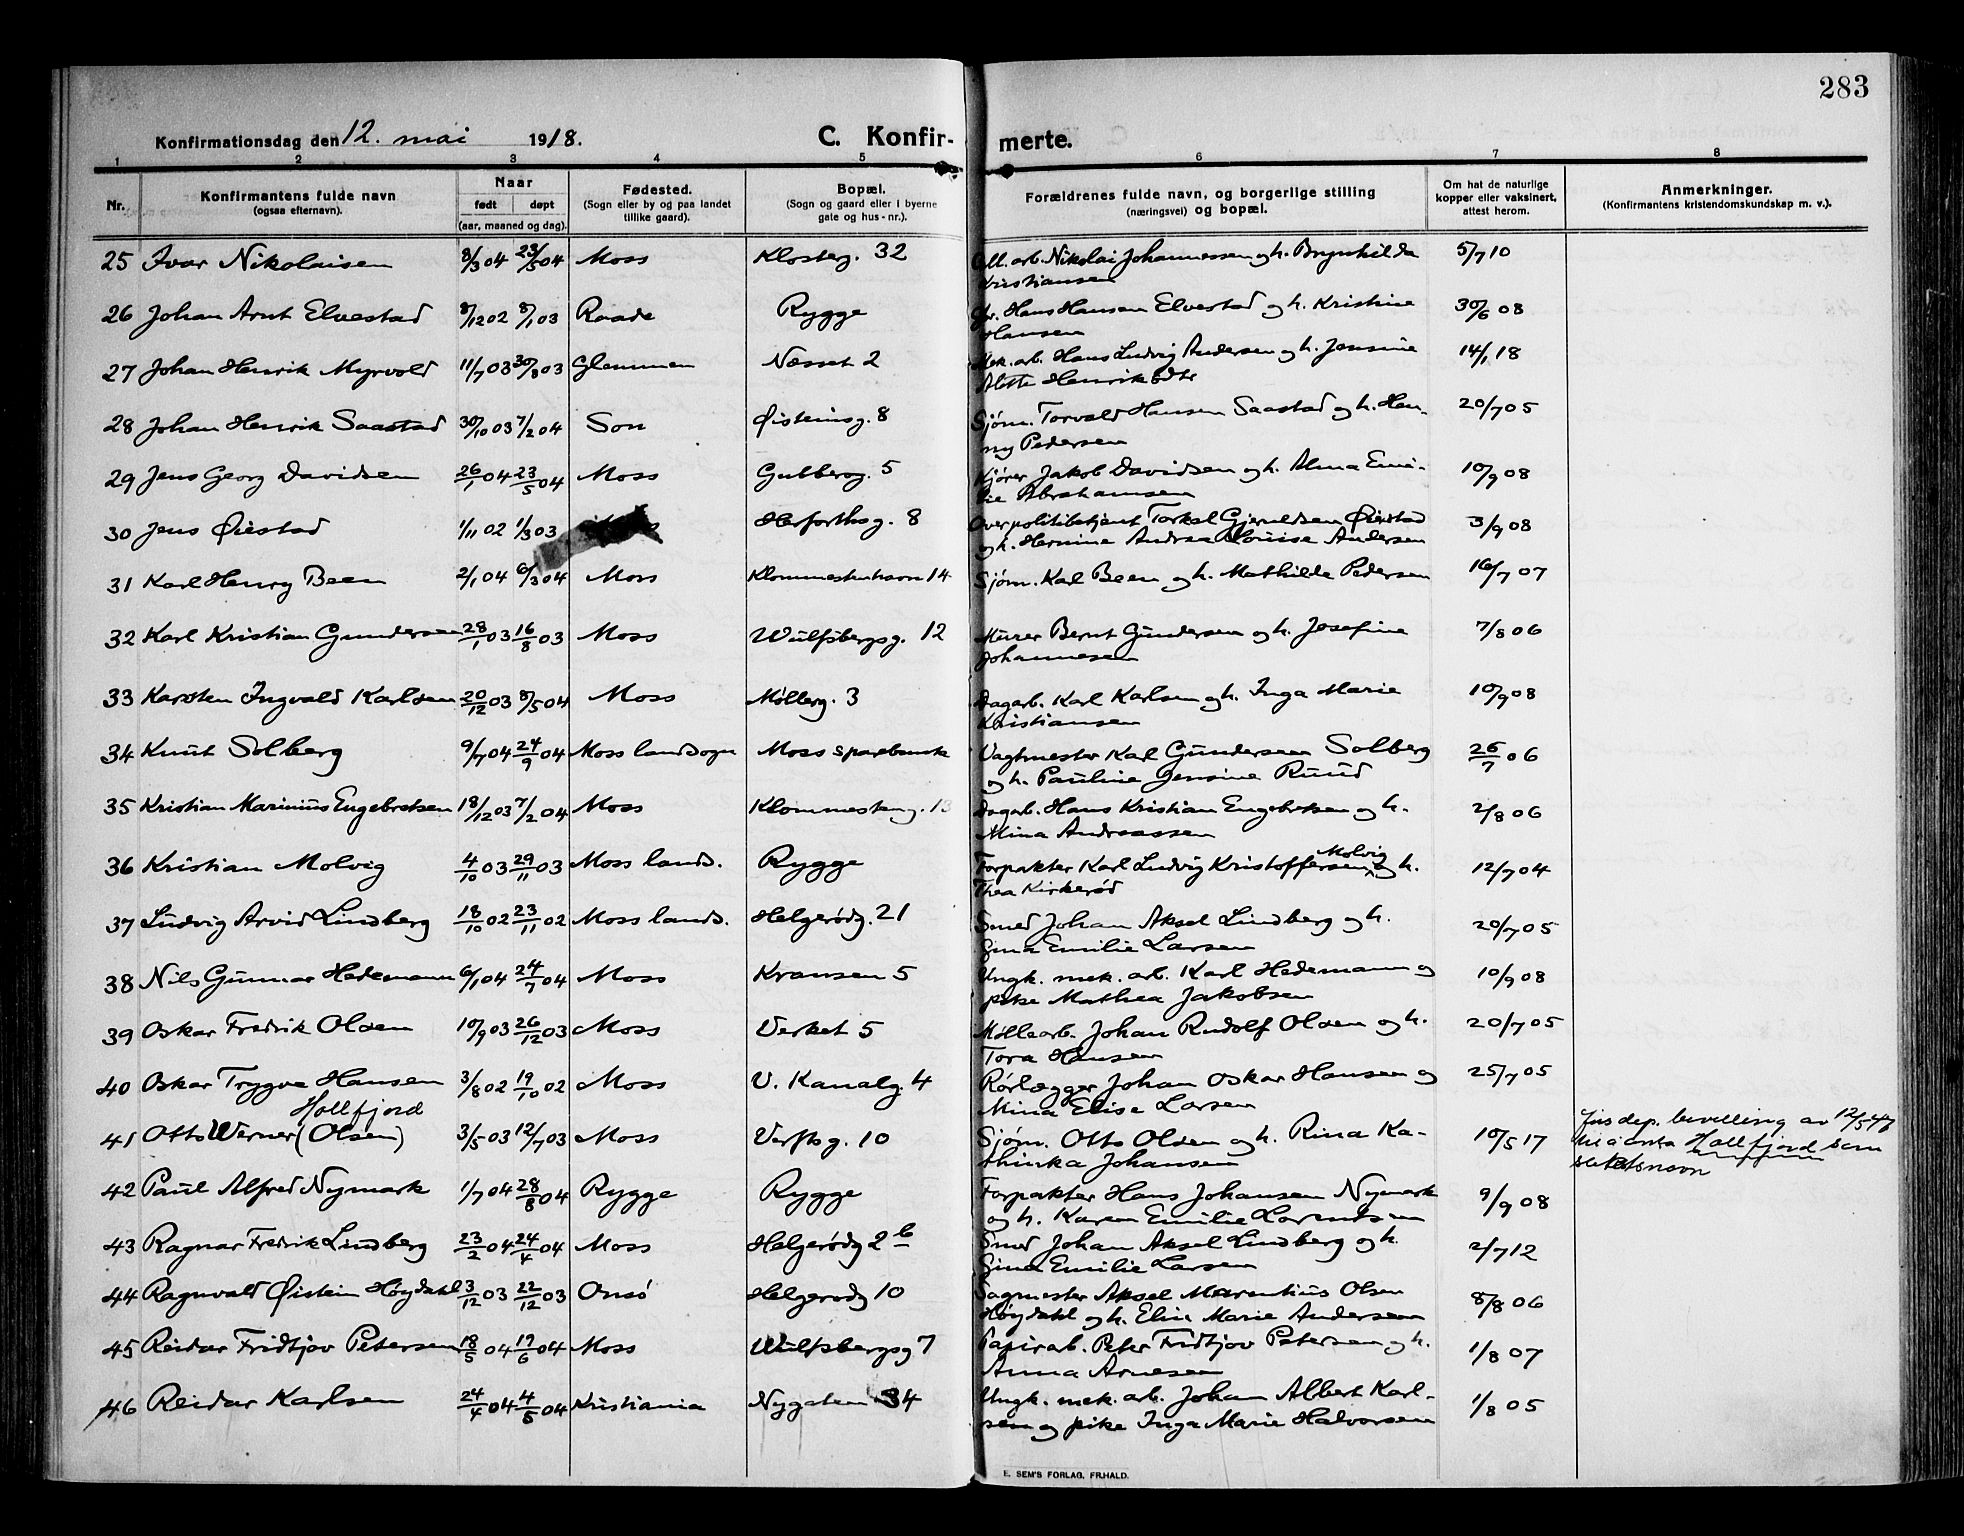 283
Konfirmationsdag den 12. mai 1918.
C. Konfirmerte.
1 2 3 4 5 6 7 8
Nr. | Konfirmantens fulde navn (ogsaa efternavn). | Naar født døpt (aar, maaned og dag). | Fødested. (Sogn eller by og paa landet tillike gaard). | Bopæl. (Sogn og gaard eller i byerne gate og hus-nr.). | Forældrenes fulde navn, og borgerlige stilling (næringsvei) og bopæl. | Om hat de naturlige kopper eller vaksinert, attest herom. | Anmerkninger. (Konfirmantens kristendomskundskap m. v.).
25 Ivar Nikolaisen 8/3 04 23/5 04 Moss Klosterg. 32 arb. Nikolai Johannessen og h. Brynhilda Kristiansen 5/7 10
26 Johan Arnt Elvestad 8/12 02 8/1 03 Raade Rygge Hans Hansen Elvestad og h. Kristine Hansen 30/6 08
27 Johan Henrik Myrvold 11/7 03 30/8 03 Glemmen Næsset 2 Mek. arb. Hans Ludvig Andersen og h. Jensine Alette Henriksdtr 14/1 18
28 Johan Henrik Saastad 30/10 03 7/2 04 Son Øisteinsg. 8 Sjøm. Torvald Hansen Saastad og h. Henny Pedersen 20/7 05
29 Jens Georg Davidsen 26/1 04 23/5 04 Moss Gudberg. 5 Kjører Jakob Davidsen og h. Alma Emilie Abrahamsen 10/9 08
30 Jens Øiestad 1/11 02 1/3 03 Herforthsg. 8 Overpolitibetjent Torkel Gjeruldsen Øiestad og h. Hermine Andrea Louise Andersen 3/9 08
31 Karl Henry Been 2/1 04 6/3 04 Moss Klommestenhavn 14 Sjøm. Karl Been og h. Mathilde Pedersen 16/7 07
32 Karl Kristian Gundersen 28/1 03 16/8 03 Moss Wulfsbergsg. 12 Murer Bernt Gundersen og h. Josefine Johannesen 7/8 06
33 Karsten Ingvald Karlsen 20/12 03 8/5 04 Moss Møllerg. 3 Dagarb. Karl Karlsen og h. Inga Marie Kristiansen 10/9 08
34 Knut Solberg 9/7 04 24/9 04 Moss landsogn Moss sparebank Vagtmester Karl Gundersen Solberg og h. Pauline Jensine Ruud 26/7 06
35 Kristian Marinius Engebretsen 18/12 03 7/2 04 Moss Klommesteng. 13 Dagarb. Hans Kristian Engebretsen og h. Mina Andreassen 2/8 06
36 Kristian Molvig 4/10 03 29/11 03 Moss lands. Rygge Forpakter Karl Ludvig Kristoffersen Molvig og h. Thea Kirkerød 12/7 04
37 Ludvig Arvid Lindberg 18/10 02 23/11 02 Moss lands. Helgerødg. 21 Smed Johan Aksel Lindberg og h. Gina Emilie Larsen 20/7 05
38 Nils Gunnar Hedemann 6/1 04 24/7 04 Moss Kransen 5 Ungk. mek. arb. Karl Hedemann og pike Mathea Jakobsen 10/9 08
39 Oskar Fredrik Olsen 10/9 03 26/12 03 Moss Verket 5 Møllearb. Johan Rudolf Olsen og h. Tora Hansen 20/7 05
40 Oskar Trygve Hansen 3/8 02 19/10 02 Moss V. Kanalg. 4 Rørlægger Johan Oskar Hansen og Mina Elise Larsen 25/7 05
41 Otto Werner (Olsen) Hollfjord 3/5 03 12/7 03 Moss Verftsg. 10 Sjøm. Otto Olsen og h. Rina Kathinka Johansen 10/5 17 Jus. dep. bevilling av 12/5 47 til å anta Hollfjord som slektsnavn
42 Paul Alfred Nymark 1/7 04 28/8 04 Rygge Rygge Forpakter Hans Johansen Nymark og h. Karen Emilie Larentsen 9/9 08
43 Ragnar Fredrik Lindberg 23/2 04 24/4 04 Moss Helgerødg 2 b Smed Johan Aksel Lindberg og h. Gina Emilie Larsen 2/7 12
44 Ragnvald Øistein Høydahl 3/12 03 22/12 03 Onsø Helgerødg 10 Sagmester Aksel Marentius Olsen Høydahl og h. Elin Marie Andersen 8/8 06
45 Reidar Fridtjov Petersen 18/5 04 19/6 04 Moss Wulfsbergsg 7 Papirarb. Peter Fridtjov Petersen og h. Anna Arnesen 1/8 07
46 Reidar Karlsen 24/4 04 4/5 04 Kristiania Nygaten 34 Ungk. mek. arb. Johan Albert Karlsen og pike Inga Marie Halvorsen 1/8 05
E. SEM'S FORLAG, FR.HALD.